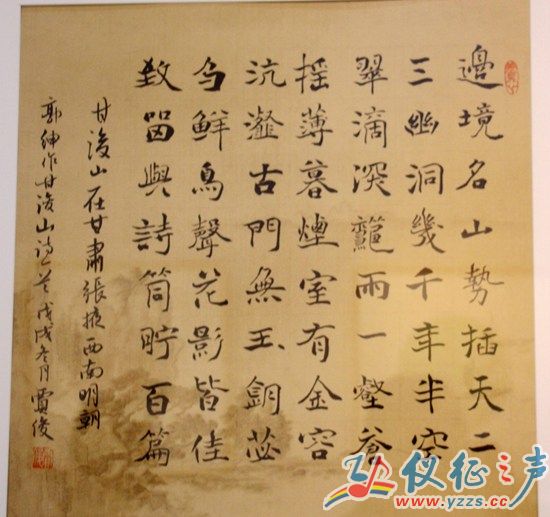 邊境名山勢插天二
三幽洞幾千年半空
翠滴深籠雨一壑蒼
摇薄暮煙室有金容
沆瀣古門無玉鈅苾
芻鮮鳥聲花影皆佳
致畱與詩筒貯百篇
甘浚山在甘肅張掖西南明朝
郭紳作甘浚山詩 戊戌冬月賈俊
仪征之声
www.yzzs.cc